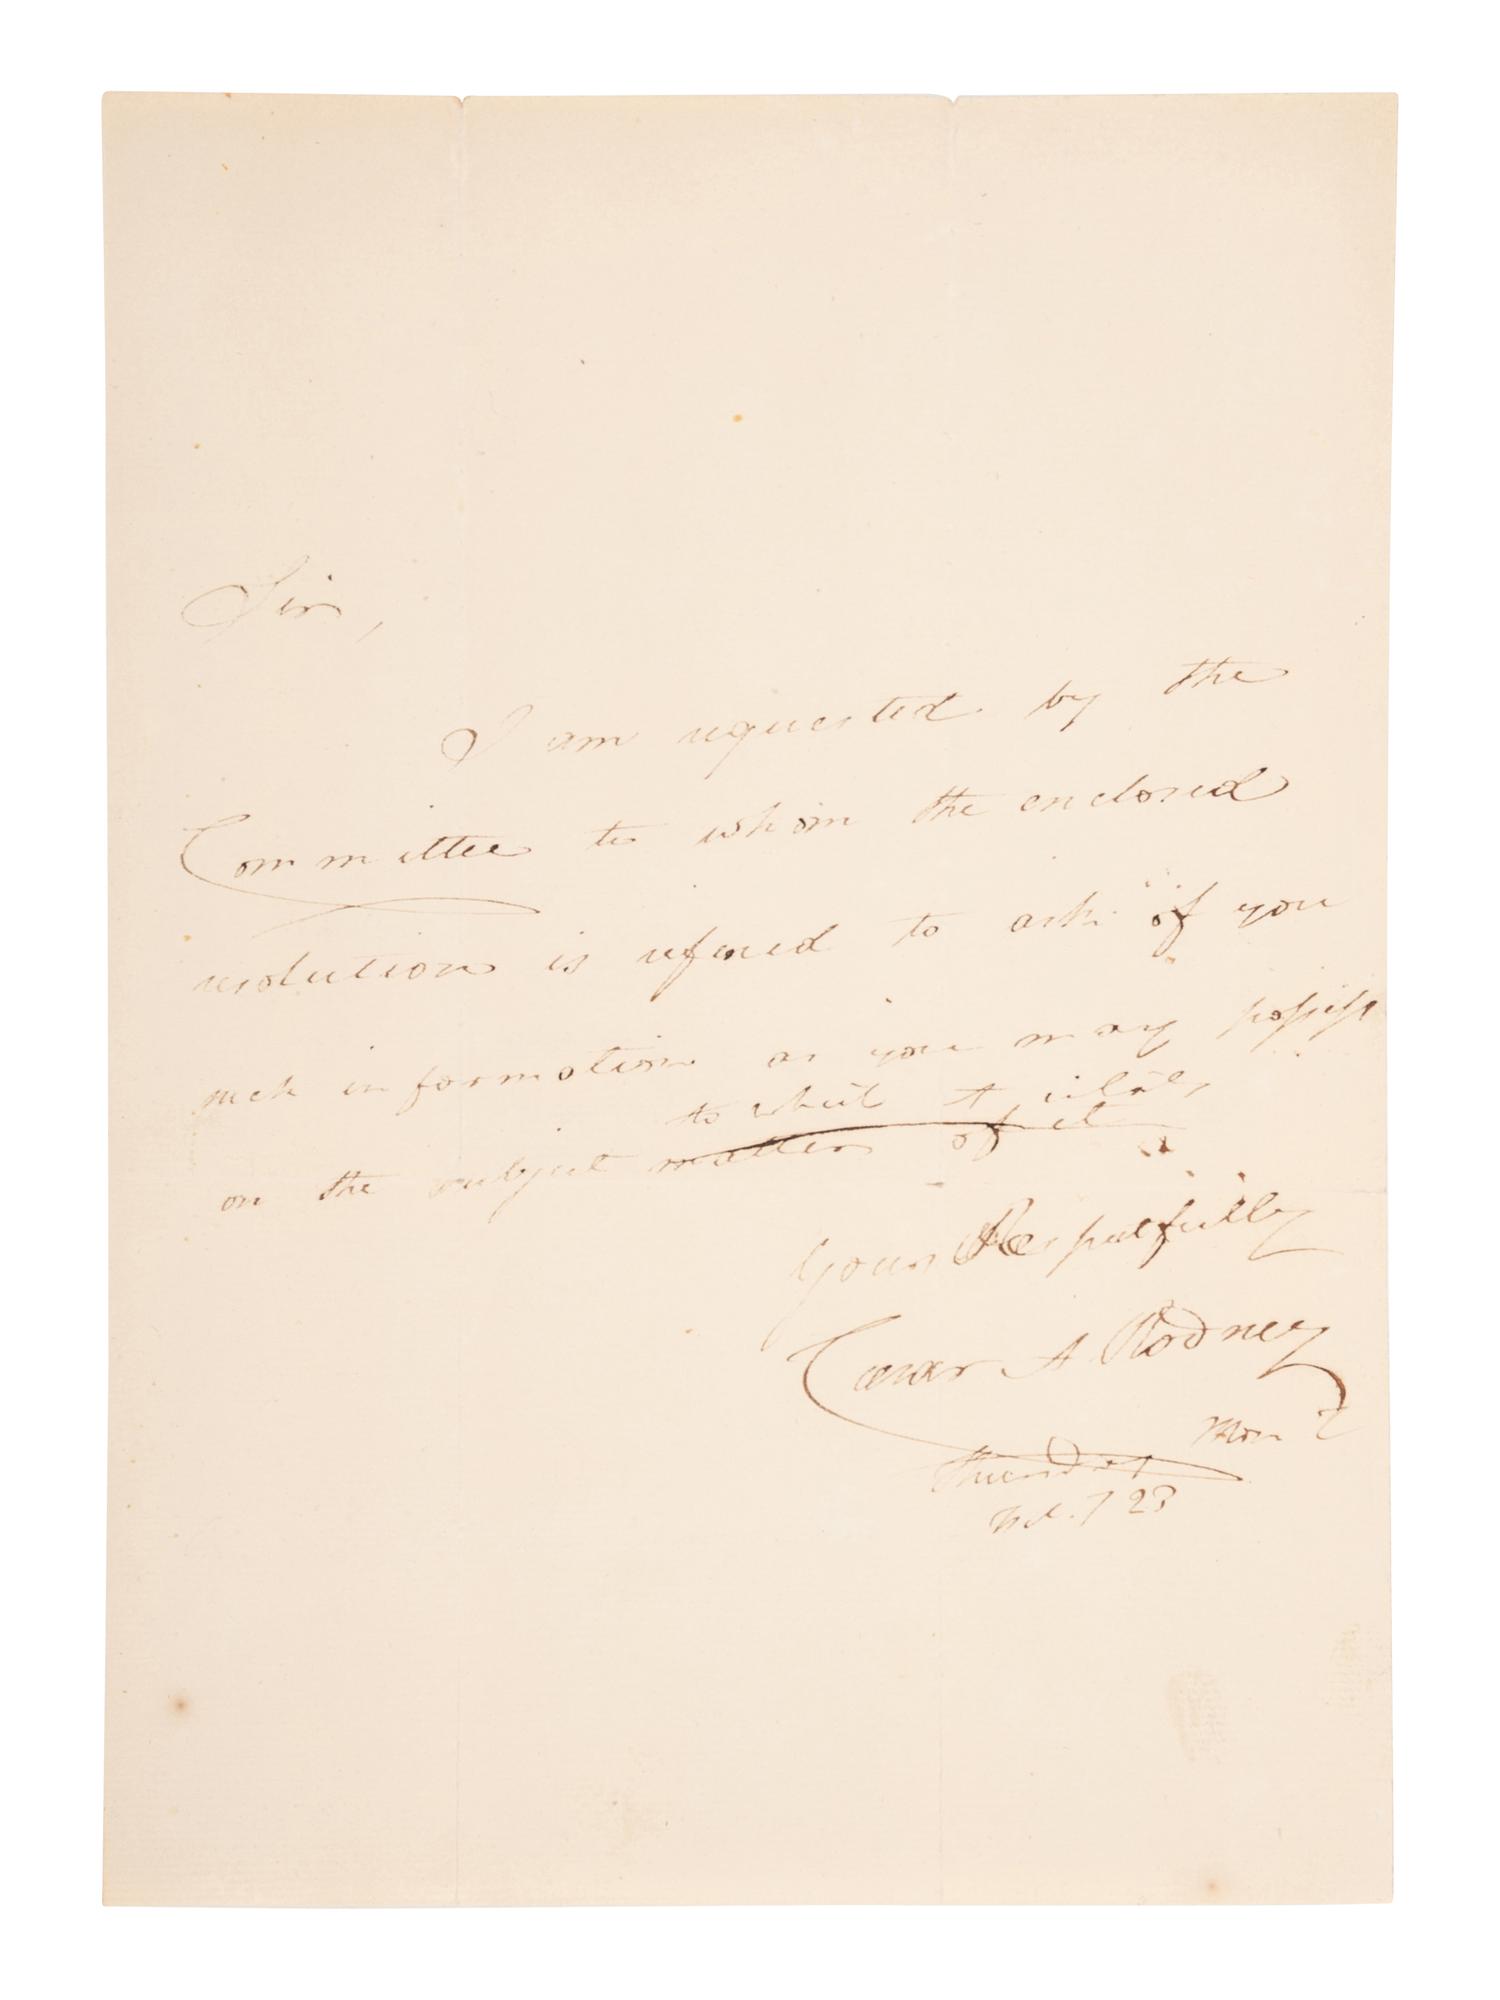 Sir,
I am requested by the
Committee to whom the enclosed
resolution is refered to ask of you
such information as you may possess
to which it relates,
on the subject matter of it
Yours Respectfully
Caesar A Rodney
Thursday
23